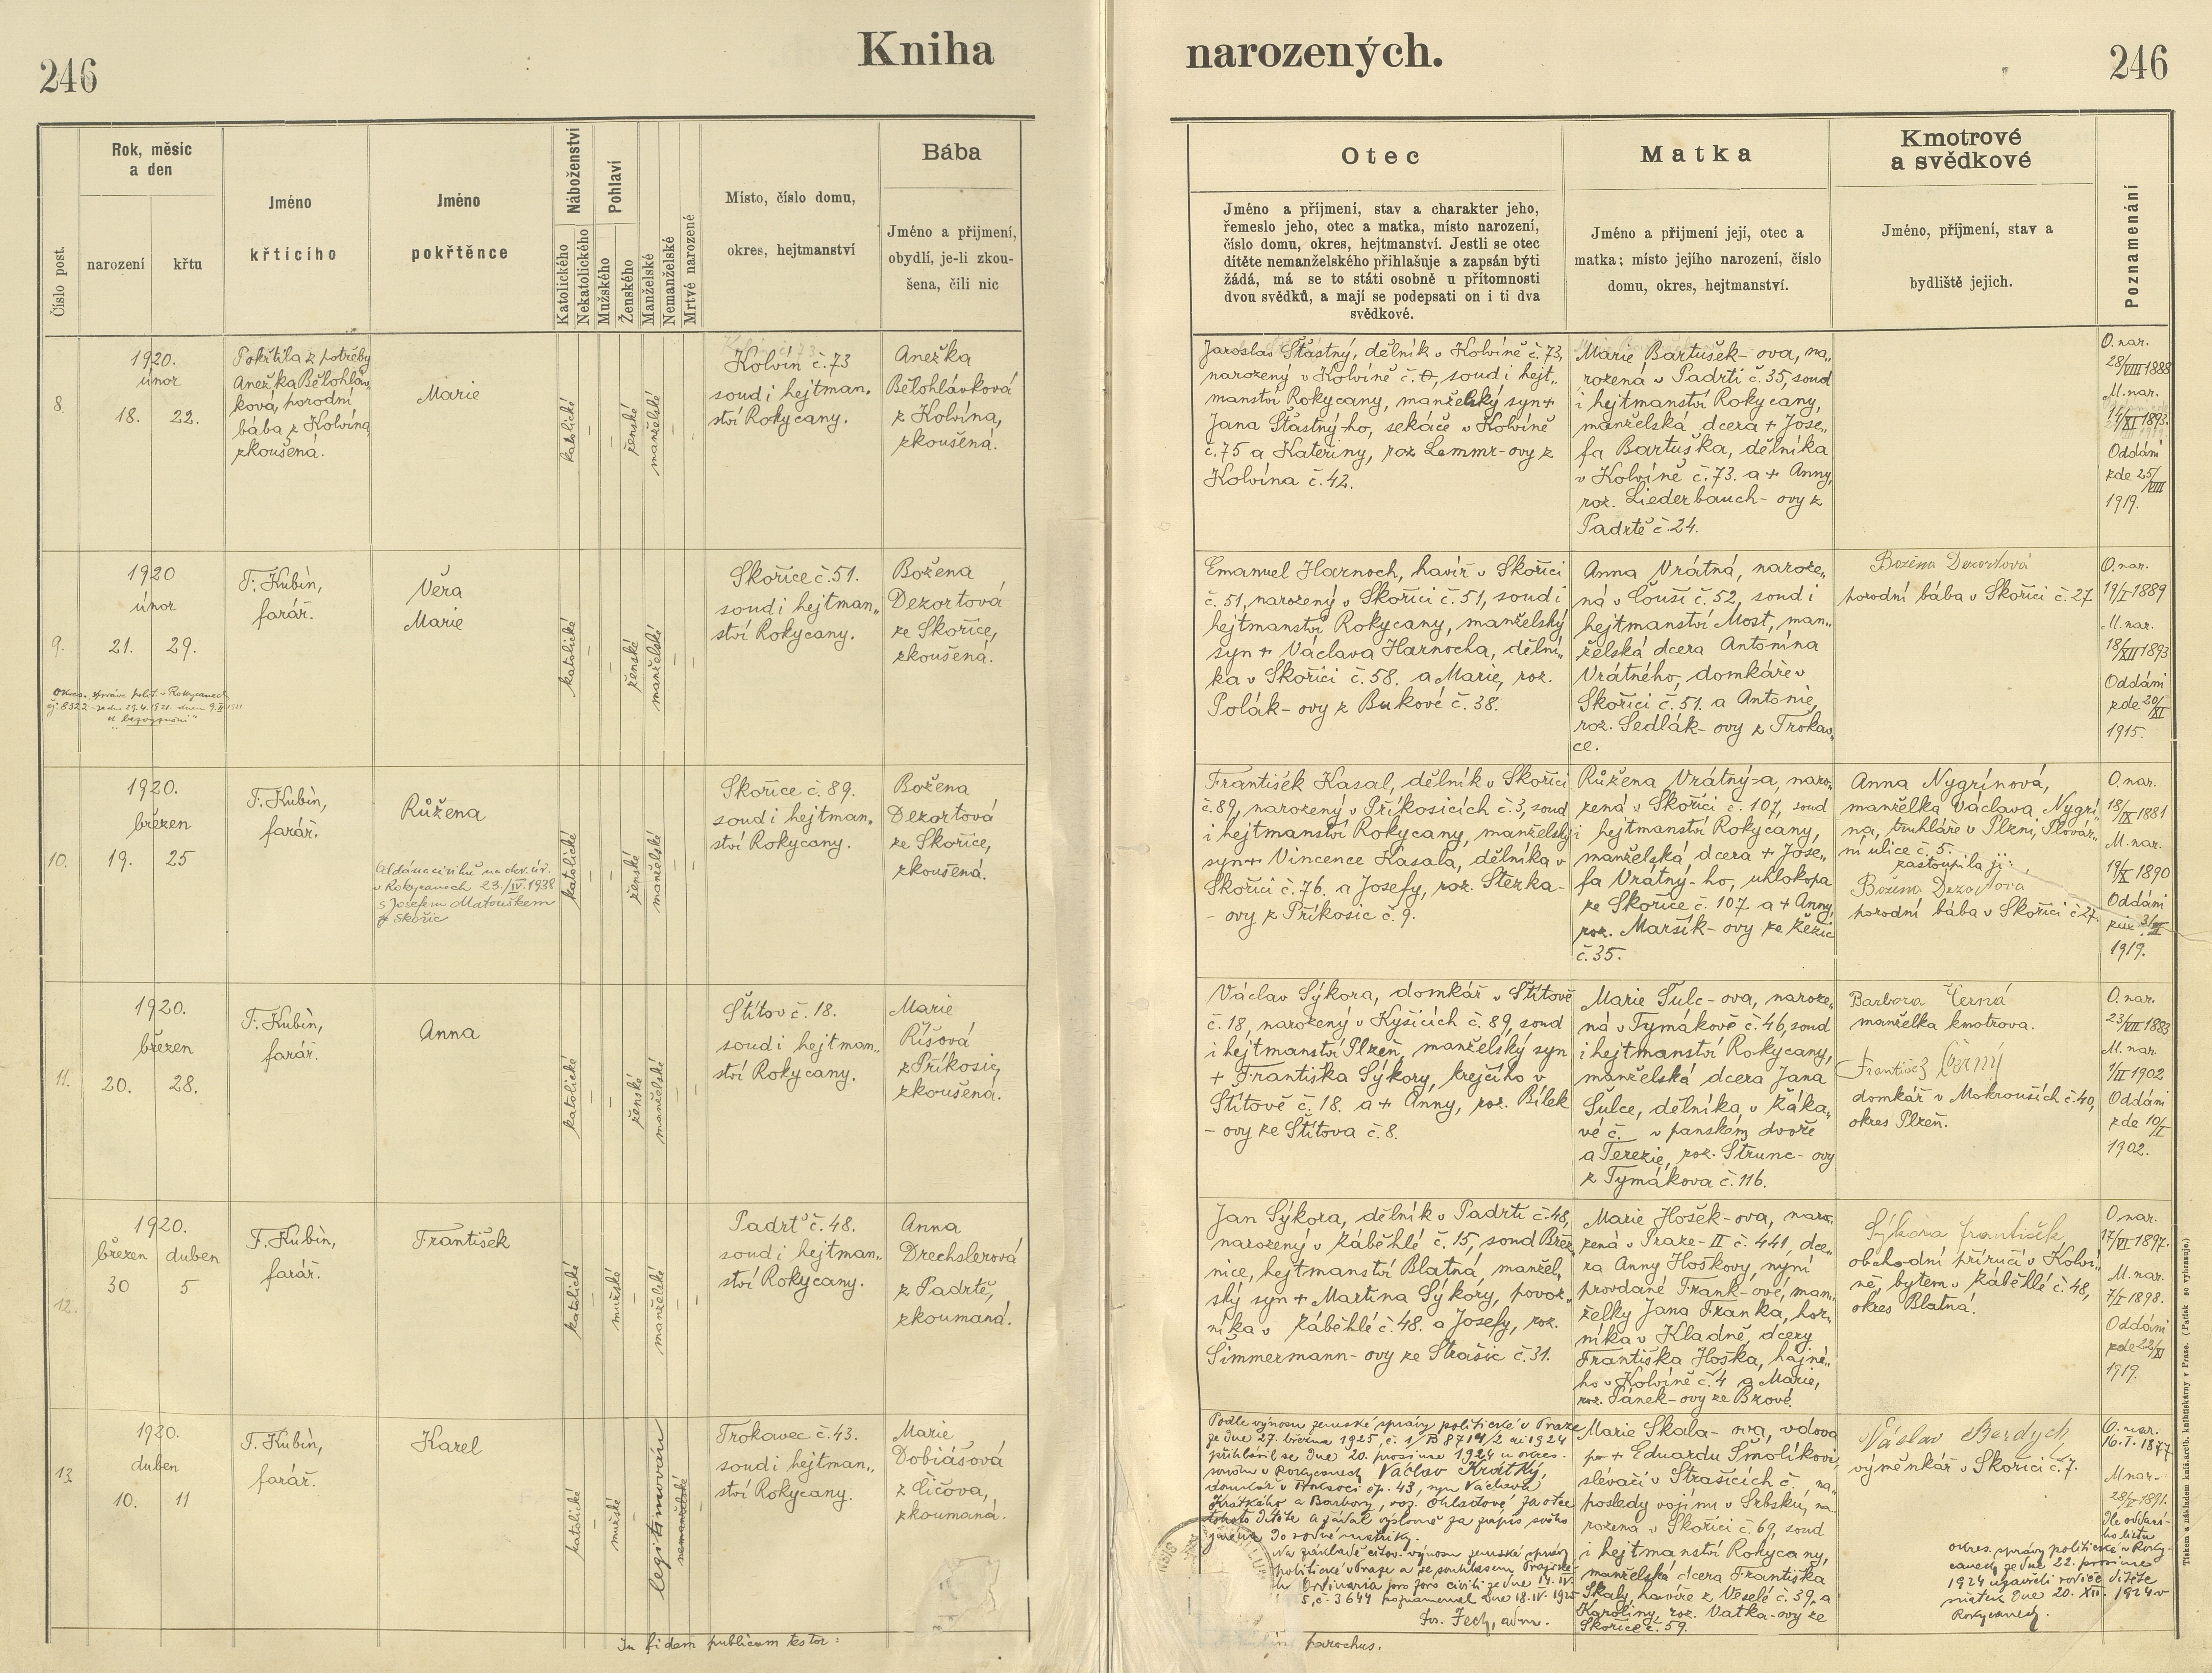 246
Kniha
narozených.
246
Číslo post.
Rok, měsíc
a den
narození
křtu
Jméno
křticího
Jméno
pokřtěnce
Náboženství
Katolického
Nekatolického
Pohlaví
Mužského
Ženského
Manželské
Nemanželské
Mrtvé narozené
Místo, číslo domu,
okres, hejtmanství
Bába
Jméno a příjmení,
obydlí, je-li zkou-
šena, čili nic
Otec
Jméno a příjmení, stav a charakter jeho,
řemeslo jeho, otec a matka, místo narození,
číslo domu, okres, hejtmanství. Jestli se otec
dítěte nemanželského přihlašuje a zapsán býti
žádá, má se to státi osobně u přítomnosti
dvou svědků, a mají se podepsati on i ti dva
svědkové.
Matka
Jméno a příjmení její, otec a
matka; místo jejího narození, číslo
domu, okres, hejtmanství.
Kmotrové
a svědkové
Jméno, příjmení, stav a
bydliště jejich.
Poznamenání
8.
1920.
únor
18. 22.
Pokřtila z potřeby
Anežka Bělohláv„
ková, porodní
bába z Kolvína,
zkoušená.
Marie
katolické
ženské
manželské
Kolvín č. 73
soud i hejtman„
ství Rokycany.
Anežka
Bělohlávková
z Kolvína,
zkoušená.
Jaroslav Šťastný, dělník v Kolvíně č. 73,
narozený v Kolvíně č. soud i hejt„
manství Rokycany, manželský syn +
Jana Šťastný-ho, sekáče v Kolvíně
č. 75 a Kateřiny, roz. Lemmr-ovy z
Kolvína č. 42.
Marie Bartušek-ova, na„
rozená v Padrti č. 35, soud
i hejtmanství Rokycany,
manželská dcera + Jose„
fa Bartuška, dělníka
v Kolvíně č. 73. a + Anny,
roz. Liederbauch-ovy z
Padrtě č. 24.
O. nar.
28/VIII 1888
M. nar.
14/XI 1893.
Oddáni
zde 25/VIII
1919.
9.
1920
únor
21. 29.
F. Kubín,
farář.
Věra
Marie
katolické
ženské
manželské
Skořice č. 51.
soud i hejtman„
ství Rokycany.
Božena
Dezortová
ze Skořice,
zkoušená.
Emanuel Harnoch, havíř v Skořici
č. 51, narozený v Skořici č. 51, soud i
hejtmanství Rokycany, manželský
syn + Václava Harnocha, dělní„
ka v Skořici č. 58. a Marie, roz.
Polák-ovy z Bukové č. 38.
Anna Vrátná, naroze„
ná v Čouši č. 52, soud i
hejtmanství Most, man„
želská dcera Antonína
Vrátného, domkáře v
Skořici č. 51. a Antonie,
roz. Sedlák-ovy z Trokav„
ce.
Božena Dezortová
porodní bába v Skořici č. 27
O. nar.
19/I 1889
M. nar.
18/XII 1893
Oddáni
zde 20/XI
1915.
10.
1920.
březen
19. 25
F. Kubín,
farář.
Růžena
Oddána civilně na okr. úř.
v Rokycanech 23./IV. 1938
s Josefem Matouškem
z Skořic
katolické
ženské
manželské
Skořice č. 89.
soud i hejtman„
ství Rokycany.
Božena
Dezortová
ze Skořice,
zkoušená.
František Kasal, dělník v Skořici
č. 89, narozený v Příkosicích č. 3, soud
i hejtmanství Rokycany, manželský
syn + Vincence Kasala, dělníka v
Skořici č. 76. a Josefy, roz. Sterka-
-ovy z Příkosic č. 9.
Růžena Vrátný-a, naro„
zená v Skořici č. 107, soud
i hejtmanství Rokycany,
manželská dcera + Jose„
fa Vrátný-ho, uhlokopa
ze Skořice č. 107 a + Anny,
roz. Maršík-ovy ze
č. 35.
Anna Nygrínová,
manželka Václava Nygrí„
na, truhláře v Plzni, Plovár„
ní ulice č. 5.
zastoupila ji:
Božena Dezortová
porodní bába v Skořici č. 27.
O. nar.
18/IX 1881
M. nar.
19/X 1890
Oddáni
1919.
11.
1920.
březen
20. 28.
F. Kubín,
farář.
Anna
katolické
ženské
manželské
Štítov č. 18.
soud i hejtman„
ství Rokycany.
Marie
Říšová
z Příkosic,
zkoušená.
Václav Sýkora, domkář v Štítově
č. 18, narozený v Kyšicích č. 89, soud
i hejtmanství Plzeň, manželský syn
+ Františka Sýkory, krejčího v
Štítově č. 18. a + Anny, roz. Bílek
-ovy ze Štítova č. 8.
Marie Šulc-ova, naroze„
ná v Tymákově č. 46, soud
i hejtmanství Rokycany,
manželská dcera Jana
Šulce, dělníka v Záka„
vé č. v panském dvoře
a Terezie, roz. Strunc-ovy
z Tymákova č. 116.
Barbora Černá
manželka kmotrova.
František Černý
domkář v Mokrouších č. 40,
okres Plzeň.
O. nar.
23/VII 1883
M. nar.
1/II 1902
Oddáni
zde 10/I
1902.
12.
1920.
březen duben
30 5
F. Kubín,
farář.
František
katolické
mužské
manželské
Padrť č. 48.
soud i hejtman„
ství Rokycany.
Anna
Drechslerová
z Padrtě,
zkoumaná.
Jan Sýkora, dělník v Padrti č. 48,
narozený v Záběhlé č. 15, soud Břez„
nice, hejtmanství Blatná, manžel„
ský syn + Martina Sýkory, povoz„
níka v Záběhlé č. 48. a Josefy, roz.
Šimmermann-ovy ze Strašic č. 31.
Marie Hošek-ova, naro„
zená v Praze-II č. 441, dce„
ra Anny Hoškovy, nyní
provdané Frank-ové, man„
želky Jana Franka, hor„
níka v Kladně, dcery
Františka Hoška, hajné„
ho v Kolvíně č. 4 a Marie,
roz. Pánek-ovy ze Brové.
Sýkora František
obchodní příručí v Kolví„
ně, bytem v Záběhlé č. 48,
okres Blatná.
O nar.
17/VI 1897.
M. nar.
7/I 1898.
Oddáni
zde 22/XI
1919.
13.
1920.
duben
10. 11
F. Kubín,
farář.
Karel
katolické
mužské
legitimován
nemanželské
Trokavec č. 43.
soud i hejtman„
ství Rokycany.
Marie
Dobiášová
z Čičova,
zkoumaná.
Podle výnosu zemské správy politické v Praze
ze dne 27. března 1925, č. 1924
přihlásil se dne 20. prosince 1924 u okres.
soudu v Rokycanech Václav Krátký,
domkář v čp. 43, syn Václava
Krátkého a Barbory, roz. za otce
tohoto dítěte a žádal výslovně za zápis svého
jména do rodné matriky.
Na základě citov. výnosu zemské správy
politické v Praze a se souhlasem
Ordinaria pro foro civili ze dne 14. IV.
č. 3644 poznamenal dne 18. IV. 1925
Fr. Zech, adm.
Marie Skala-ova, vdova
po + Eduardu Smolíkovi,
slévači v Strašicích č. , na„
posledy vojínu v Srbsku, na„
rozená v Skořici č. 69, soud
i hejtmanství Rokycany,
manželská dcera Františka
Skaly, havíře z Veselé č. 39. a
Karoliny, roz. Vatka-ovy ze
Skořice č. 59.
Václav Berdych
výměnkář v Skořici č. 7.
okres. správy politické v Roky-
canech ze dne 22. prosince
1924 uzavřeli rodiče dítěte
sňatek dne 20. XII. 1924 v
Rokycanech.
O. nar.
16. I. 1877
M nar.
28/V 1891.
Dle oddací-
ho listu
In fidem publicam testor:
parochus.
Tiskem a nákladem kníž. arcib. knihtiskárny v Praze. (Patisk se vyhrazuje.)